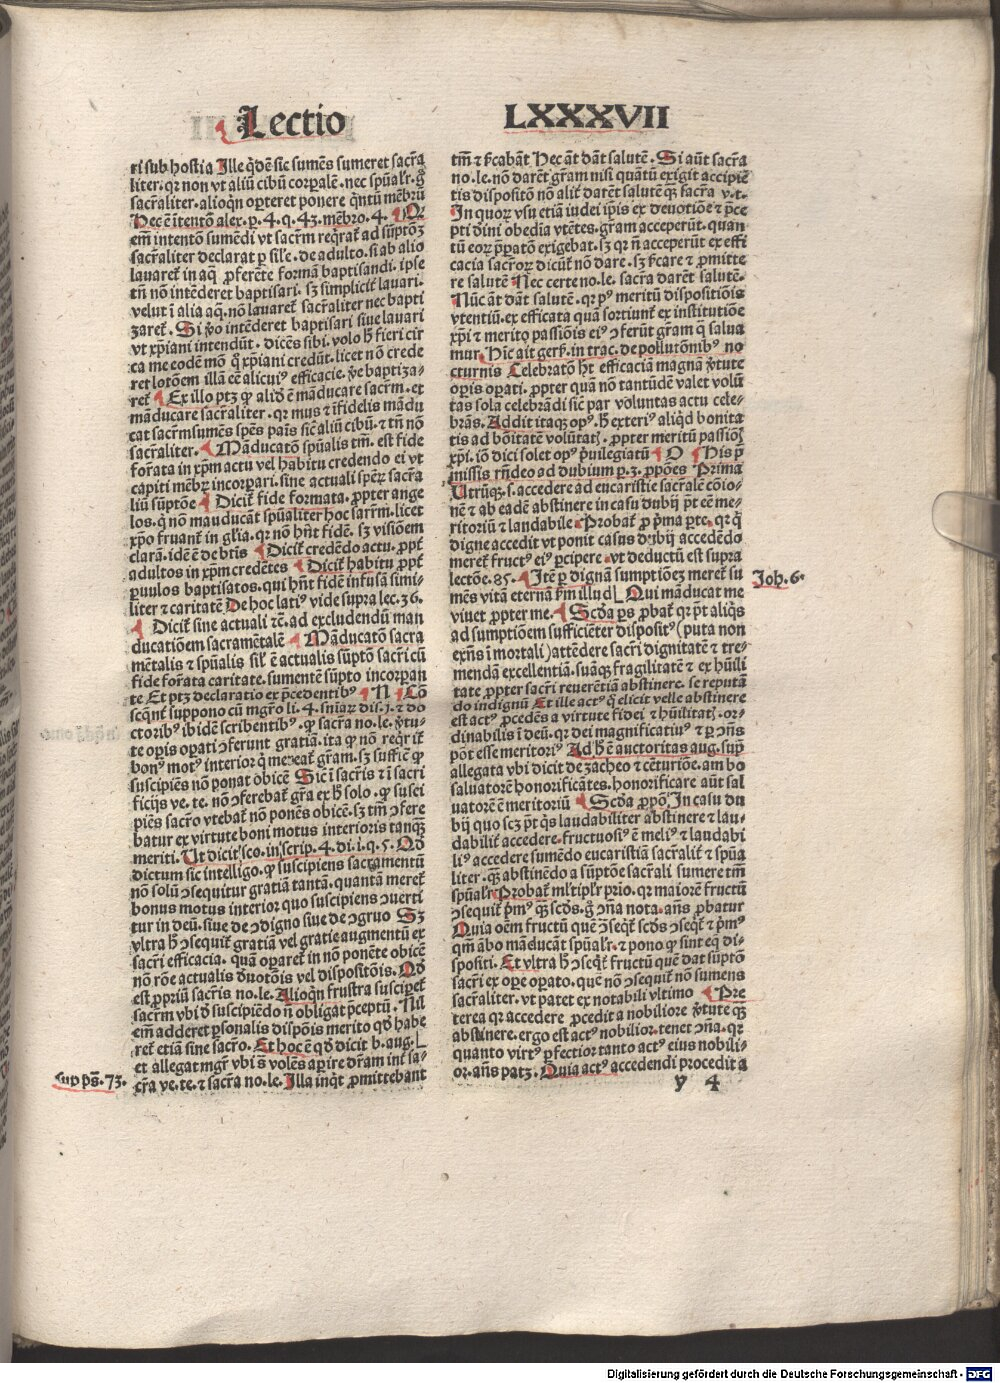 Lectio LXXXVII
ri sub hostia Ille q̇dē sic sumēs sumeret sacra
liter. qr non vt aliū cibū corpalē. nec spūalr. g̊
sacraliter. alioqn oporteret ponere qntū mēbrū
Hec ē ītentō alex. p. 4. q. 43. mēbro. 4. ¶ Q
em̄ intentō sumēdi vt sacrm̄ reqrat̄ ad sūptōꝫ
sacraliter declarat p sile. de adulto. si ab alio
lauaret̄ in aq̄ ꝓferēte formā baptisandi. ipse
tn̄ nō intēderet baptisari. sꝫ simplicit̄ lauari.
velut ī alia aq̄. nō lauaret̄ sacraliter nec bapti
zaret̄. Si ṽo intēderet baptisari siue lauari
vt xp̄iani intendūt. dicēs sibi. volo h̄ fieri cir
ca me eodē mō q̄ xp̄iani credūt. licet nō crede
ret lotōem illā eē alicuiꝰ efficacie. ṽe baptiza-
ret̄ ¶ Ex illo ptꝫ qꝫ aliđ ē māducare sacrm̄. et
māducare sacraliter. qr mus ⁊ īfidelis mādu
cat sacrm̄ sumēs spēs panis sic aliū cibū. ⁊ tn̄ nō
sacraliter. ¶ Māducatō spūalis tm̄. est fide
forata in xp̄m actu vel habitu credendo ei vt
capiti mēbꝝ incorpari. sine actuali speꝝ sacra
liū sūptōe ¶ Dicit̄ fide formata. ꝓpter ange
los. q̇ nō mauducāt spūaliter hoc sarrm̄. licet
xp̄o fruant̄ in glia. qr nō hn̄t fidē. sꝫ visiōem
clarā. idē ē de btis ¶ Dicit̄ credēdo actu. ꝓpt̄
adultos in xp̄m credētes ¶ Dicit̄ habitu ꝓpt̄
paruulos baptisatos. qui hn̄t fidē infusā simi-
liter ⁊ caritatē De hoc latiꝰ vide supra lec. 36.
¶ Dicit̄ sine actuali ⁊c̄. ad excludendū man
ducatiōem sacramētalē ¶ Māducatō sacra
mētalis ⁊ spūalis sil' ē actualis sūptō sacri cū
fide forata caritate. sumentē sūpto incorpan
te Et ptꝫ declaratio ex p̄cedentibꝰ ¶ N ¶ Cō
seqn̄t suppono cū mgr̄o li. 4. sniaꝝ dis. 1. ⁊ do
ctoribꝰ ibidē scribentibꝰ. qꝫ sacra no. le. ṽtu-
te opis opati ↄferunt gratiā. ita qꝫ nō reqrit̄
bonꝰ motꝰ interior q̇ mereat̄ gram̄. sꝫ sufficē qꝫ
suscipiēs nō ponat obicē Sic ī sacris ⁊ ī sacri
ficijs ve. te. nō ↄferebat̄ gra ex h̄ solo. qꝫ susci
piēs sacro vtebat̄ nō ponēs obicē. sꝫ tm̄ ↄfere
batur ex virtute boni motus interioris tanqꝫ
meriti. Ut dicit̄ sco. in scrip. 4. di. i. q. 5. Qđ
dictum sic intelligo. qꝫ suscipiens sacramentū
nō solū ↄsequitur gratiā tantā. quantā meret̄
bonus motus interior quo suscipiens ↄuerti
tur in deū. siue de ↄdigno siue de ↄgruo Sꝫ
vltra h̄ ↄsequit̄ gratiā vel gratie augmentū ex
sacri efficacia. quā oparet̄ in nō ponēte obicē
nō rōe actualis ḋuotōis vel dispositōis. Qđ
est ꝓpriū sacris no. le. Alioqn frustra susciperet̄
sacrm̄ vbi đ suscipiēdo n̄ obligat p̄ceptū. Nil
em̄ adderet psonalis dispōis merito qđ habe
ret̄ etiā sine sacro. Et hoc ē qđ dicit b. aug.
et allegat mgr̄ vbi s̄ volēs apire dr̄am int̄ sa-
Sup ps̄. 73.
cra ve. te. ⁊ sacra no. le. Illa inq̇t ꝓmittebant
tm̄ ⁊ sīcabāt Hec āt dāt salutē. Si aūt sacra
no. le. nō darēt gram̄ nisi quātū exigit accipiē
tis dispositō nō alit̄ darēt salutē qꝫ sacra v. t.
In quoꝝ vsu etiā iudei ip̄is ex deuotiōe ⁊ p̄ce
pti dini obedia vtētes. gram̄ acceperūt. quan
tū eoꝝ p̄patō exigebat. sꝫ qr n̄ acceperūt ex effi
cacia sacroꝝ dicūt̄ nō dare. sꝫ sīcare ⁊ ꝓmitte
re salutē Nec certe no. le. sacra darēt salutē.
Nūc āt dāt salutē. qr pꝰ meritū dispositiōis
vtentiū. ex efficata quā sortiunt̄ ex institutiōe
xp̄i ⁊ merito passiōis eiꝰ ↄferūt gram̄ q̄ salua
mur. Hīc ait gers. in trac. de pollutōnibꝰ no
cturnis Celebratō hꝫ efficaciā magnā ṽtute
opis opati. ꝓpter quā nō tantūdē valet volū
tas sola celebrādi sic par voluntas actu cele-
brās. Addit itaqꝫ opꝰ. h̄ exteriꝰ aliqđ bonita
tis ad bōitatē volūtatꝭ. ꝓpter meritū passiōꝭ
xp̄i. iō dici solet opꝰ p̄uilegiatū ¶ O ¶ His p̄
missis rn̄deo ad dubium p. 3. ꝓpōes Prima
Utrūqꝫ. s. accedere ad eucaristie sacralē cōio-
nē ⁊ ab eadē abstinere in casu dubij pt̄ eē me-
ritoriū ⁊ laudabile ¶ Probat̄ ꝓ p̄ma parte. qr q̇
digne accedit vt ponit casus dubij accedēdo
meret̄ fructꝰ eiꝰ pcipere. vt deductū est supra
lectōe. 85. ¶ Itē p dignā sumptiōeꝫ meret̄ su
Joh. 6.
mēs vitā eternā s̄m illud Qui māducat me
viuet ꝓpter me. ¶ Scđa ps ꝓbat̄ qr pt̄ aliq̇s
ad sumptiōem sufficiēter dispositꝰ (puta non
exn̄s ī mortali) attēdere sacri dignitatē ⁊ tre-
mendā excellentiā. suāqꝫ fragilitatē ⁊ ex hūili
tate ꝓpter sacri reuerētiā abstinere. se reputā
do indignū Et ille actꝰ q̇ elicit velle abstinere
est actꝰ ꝓcedēs a virtute fidei ⁊ hūilitatꝭ. or-
dinabilis ī deū. qr dei magnificatiuꝰ ⁊ p ↄn̄s
pōt esse meritoriꝰ Ad h̄ ē auctoritas aug. sup̄
allegata vbi dicit de zacheo ⁊ cētuiōe. am bo
saluatorē honorificātes. honorificare aūt sal
uatorē ē meritoriū ¶ Scđa ꝓpō. In casu du
bij quo scꝫ pt̄ q̇s laudabiliter abstinere ⁊ lau-
dabilit̄ accedere. fructuosiꝰ ē meliꝰ ⁊ laudabi
liꝰ accedere sumēdo eucaristiā sacralit̄ ⁊ spūa
liter. qꝫ abstinēdo a sūptōe sacrali sumere tm̄
spūalr Probat̄ ml'tiplr prio. qr maiorē fructū
ↄsequit̄ p̄mꝰ qꝫ scđs. g̊ ↄn̄a nota. an̄s ꝓbatur
Quia oēm fructū quē ↄseqt̄ scđs ↄseqt̄ ⁊ p̄mꝰ
qm̄ ābo māducāt spūalr. ⁊ pono qꝫ sint eq̄ di-
spositi. Et vltra h̄ ↄseqt̄ fructū quē dat sūptō
sacri ex ope opato. quē nō ↄsequit̄ nō sumens
sacraliter. vt patet ex notabili vltimo ¶ Pre
terea qr accedere ꝓcedit a nobiliore ṽtute qꝫ
abstinere. ergo est actꝰ nobilior. tenet ↄn̄a. qr
quanto virtꝰ pfectior tanto actꝰ eius nobili-
or. an̄s patꝫ. Quia actꝰ accedendi procedit a
y 4
Digitalisierung gefördert durch die Deutsche Forschungsgemeinschaft - DFG